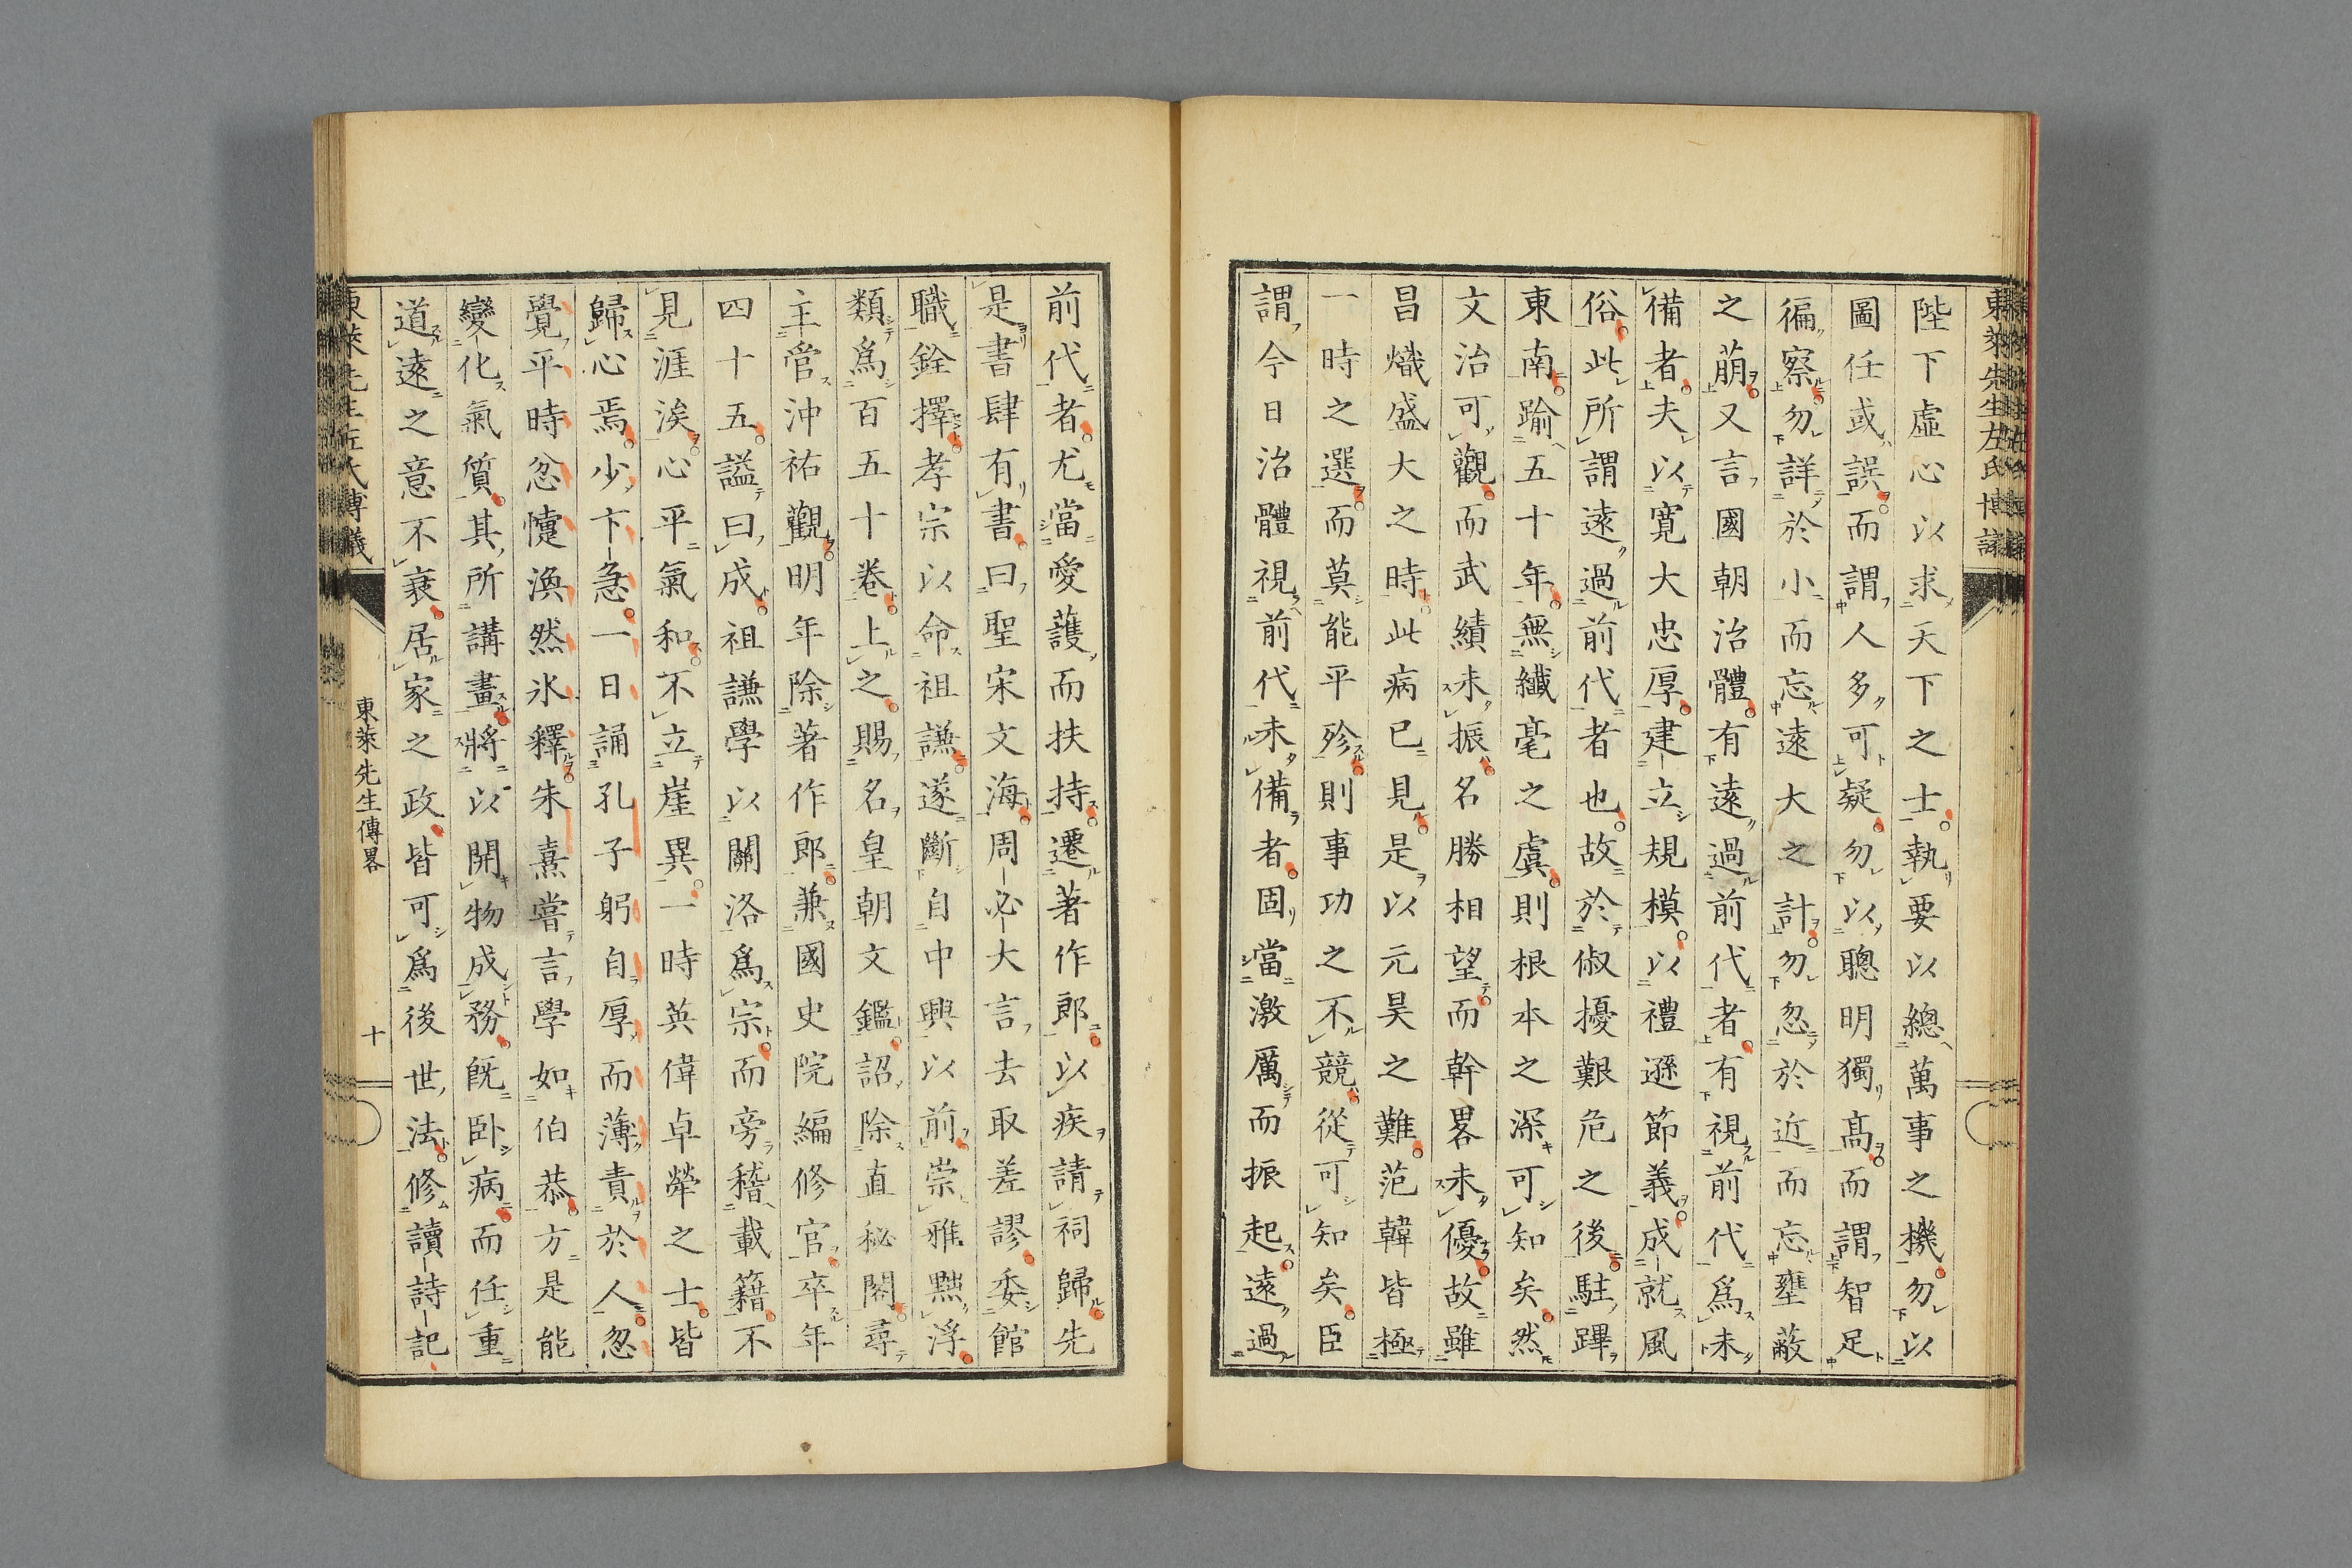 東萊先生左氏博議
陛下虛心以求天下之士執要以總萬事之機勿以
圖任或誤而謂人多可疑勿以聰明獨髙而謂智足
徧察勿詳於小而忘遠大之計勿忽於近而忘壅蔽
之萌又言國朝治體有遠過前代者有視前代爲未
備者夫以寛大忠厚建立規模以禮遜節義成就風
俗此所謂遠過前代者也故於俶擾艱危之後駐蹕
東南踰五十年無纖毫之虞則根本之深可知矣然
文治可觀而武績未振名勝相望而幹畧未優故雖
昌熾盛大之時此病已見是以元昊之難范韓皆極
一時之選而莫能平殄則事功之不競從可知矣臣
謂今日治體視前代未備者固當激厲而振起遠過
前代者尤當愛䕶而扶持遷著作郎以疾請祠歸先
是書肆有書曰聖宋文海周必大言去取差謬委館
職銓擇孝宗以命祖謙遂斷自中興以前崇雅黜浮
類爲百五十卷上之賜名皇朝文鑑詔除直秘閣尋
主管沖祐觀明年除著作郎兼國史院編修官卒年
四十五謚曰成祖謙學以關洛爲宗而旁稽載籍不
見涯涘心平氣和不立崖異一時英偉卓犖之士皆
歸心焉少卞急一日誦孔子躬自厚而薄責於人忽
覺平時忿懥渙然氷釋朱熹嘗言學如伯恭方是能
變化氣質其所講畫將以開物成務旣卧病而任重
道遠之意不衰居家之政皆可爲後世法修讀詩記
東萊先生左氏博議
東萊先生傳畧
十